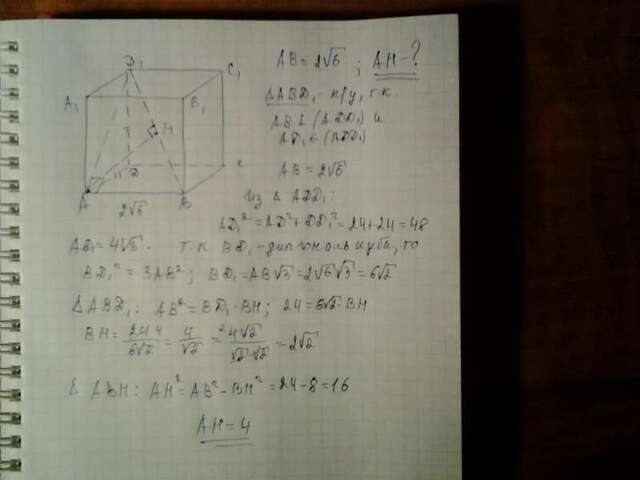 AB = 2√6 ; AH - ?
D₁
C₁
A₁
B₁
H
D
C
A
B
2√6
△ABD₁ - п/у, т.к.
AB ⊥ (ADD₁) и
AD₁ ∈ (ADD₁)
AB = 2√6
Из △ ADD₁:
AD₁² = AD² + DD₁² = 24 + 24 = 48
AD₁ = 4√3. т.к BD₁ - диагональ куба, то
BD₁² = 3AB²; BD₁ = AB√3 = 2√6 √3 = 6√2
△ABD₁: AB² = BD₁ · BH; 24 = 6√2 · BH
BH = 24 4 / 6√2 = 4 / √2 = 4√2 / √2·√2 = 2√2
△ ABH: AH² = AB² - BH² = 24 - 8 = 16
AH = 4